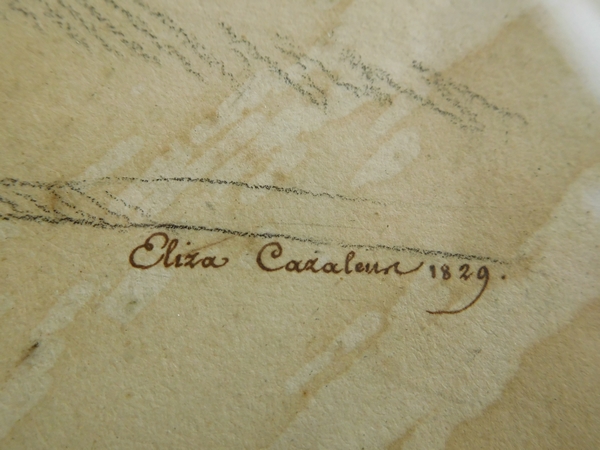 Eliza Cazalens 1829.